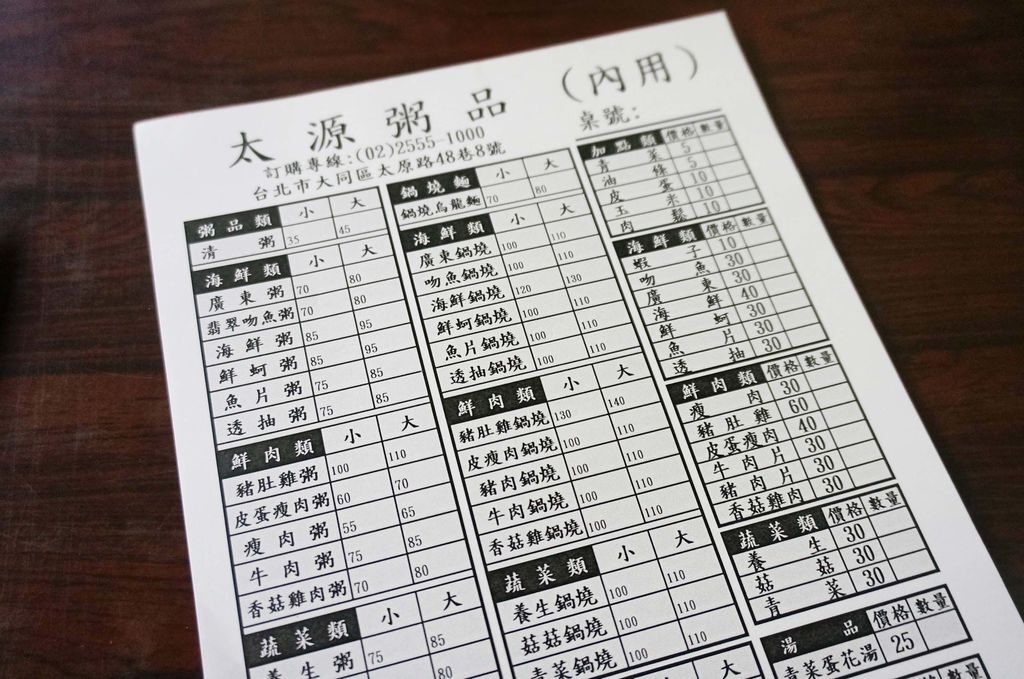 太源粥品 (內用)
訂購專線:(02)2555-1000
台北市大同區太原路48巷8號
桌號:
粥品類 小 大
清粥 35 45
海鮮類 小 大
廣東粥 70 80
翡翠吻魚粥 70 80
海鮮粥 85 95
鮮蚵粥 85 95
魚片粥 75 85
透抽粥 75 85
鮮肉類 小 大
豬肚雞粥 100 110
皮蛋瘦肉粥 60 70
瘦肉粥 55 65
牛肉粥 75 85
香菇雞肉粥 70 80
蔬菜類 小 大
養生粥 75 85
80
鍋燒麵 小 大
鍋燒烏龍麵 70 80
海鮮類 小 大
廣東鍋燒 100 110
吻魚鍋燒 100 110
海鮮鍋燒 120 130
鮮蚵鍋燒 100 110
魚片鍋燒 100 110
透抽鍋燒 100 110
鮮肉類 小 大
豬肚雞鍋燒 130 140
皮瘦肉鍋燒 100 110
豬肉鍋燒 100 110
牛肉鍋燒 100 110
香菇雞鍋燒 100 110
蔬菜類 小 大
養生鍋燒 100 110
菇菇鍋燒 100 110
青菜鍋燒 100 110
大
加點類 價格 數量
青菜 5
油條 5
皮蛋 10
玉米 10
肉鬆 10
海鮮類 價格 數量
蝦子 10
吻魚 30
廣東 30
海鮮 40
鮮蚵 30
魚片 30
透抽 30
鮮肉類 價格 數量
瘦肉 30
豬肚雞 60
皮蛋瘦肉 40
牛肉片 30
豬肉片 30
香菇雞肉 30
蔬菜類 價格 數量
養生 30
菇菇 30
青菜 30
湯品 價格 數量
青菜蛋花湯 25